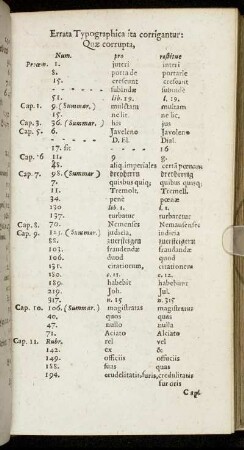 Errata Typographica ita corrigantur:
Quæ corrupta,
Num. pro restitue
Proœm. 1. juteri interi
8. porta de portarle
15. crescunt crescant
subinde
51. lib. 19. l. 19.
Cap. 1. 9. (Summar.) multam
15. ne lic. ne lic.
Cap. 3. 36. (Summar.) his jus
Cap. 5. 6. Javeleno Javoleno
D. Fl. Disl.
17. sit 16
Cap. 6 11. 9 g.
48. aliq. imperiales
Cap. 7. 98. (Summar.)
7. quibus quiq; quibus quisq;
11. Tremolt. Tremell.
34. pene pœnæ
130 lib. 1. l. 1.
137. turbatur turbaretur
Cap. 8. 70. Nemenses Nemausenses
Cap. 9. (Summar.) judicia, indicia
88.
103. fraudendæ fraudandæ
106. duod quod
131. citatiorum, citationem
180. s. 11. s. 12.
189. habebit habebunt
219. Joh. Jul.
317. n. 15 n. 315
Cap. 10. 106. (Summar.) magistratus magistratus
40. quos quas
47. nullo nulla
71. Aciato Alciato
Cap. 11. Rubr. rel vel
142. ex &
149. officiis officiis
188. fitis quas
194. crudelitatis furis, credulitatis
furoris
Capl.